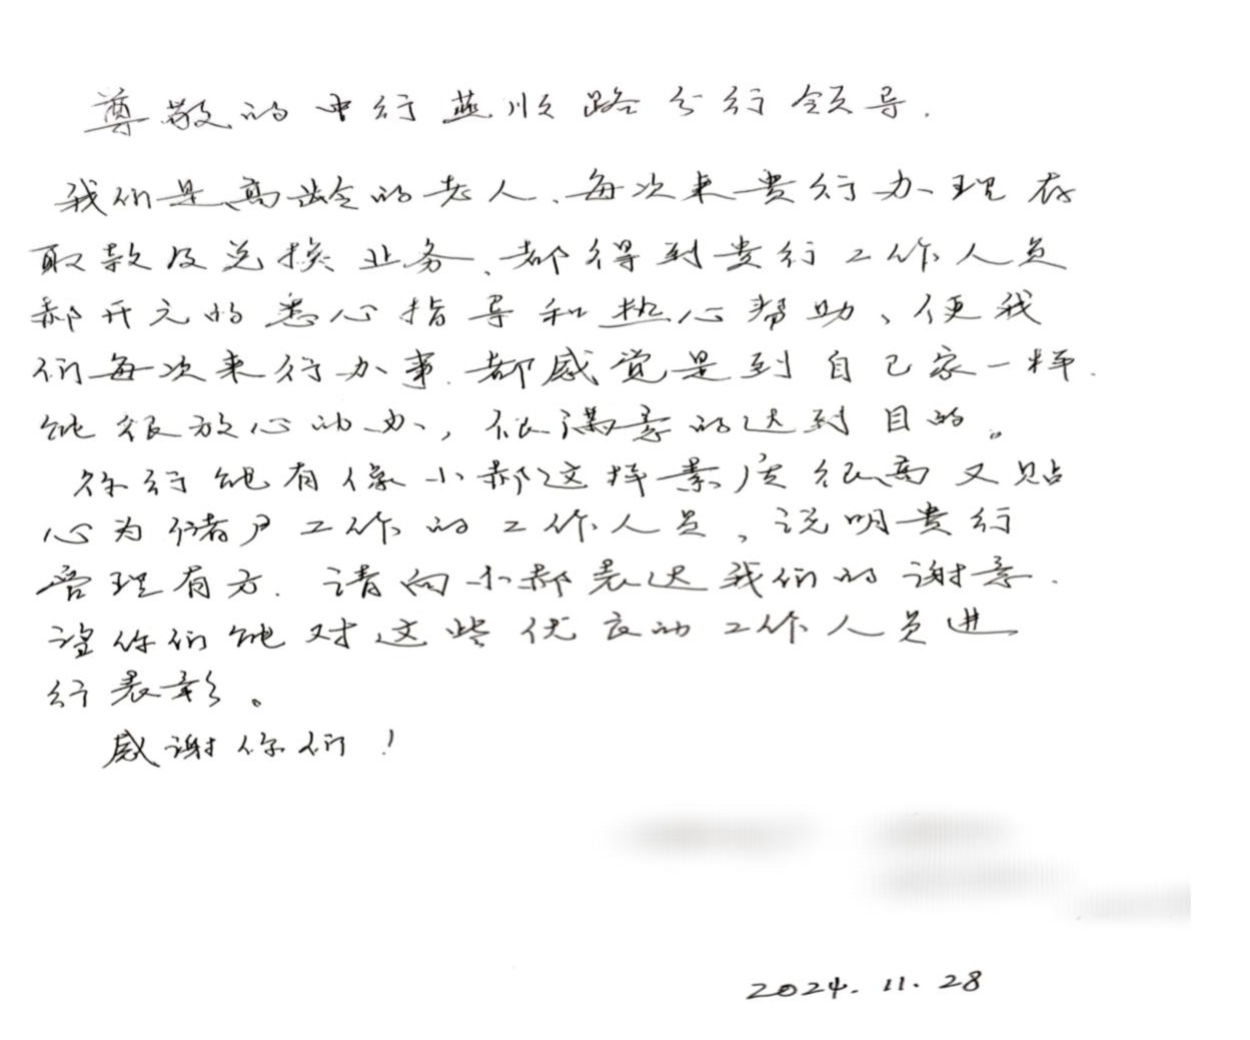 尊敬的中行燕顺路分行领导.
我们是高龄的老人、每次来贵行办理存
取款及兑换业务、都得到贵行工作人员
郝开元的悉心指导和热心帮助、使我
们每次来行办事.都感觉是到自己家一样.
能很放心的办,很满意的达到目的。
你行能有像小郝这样素质很高又贴
心为储户工作的工作人员,说明贵行
管理有方.请向小郝表达我们的谢意.
望你们能对这些优良的工作人员进
行表彰。
感谢你们!
2024.11.28